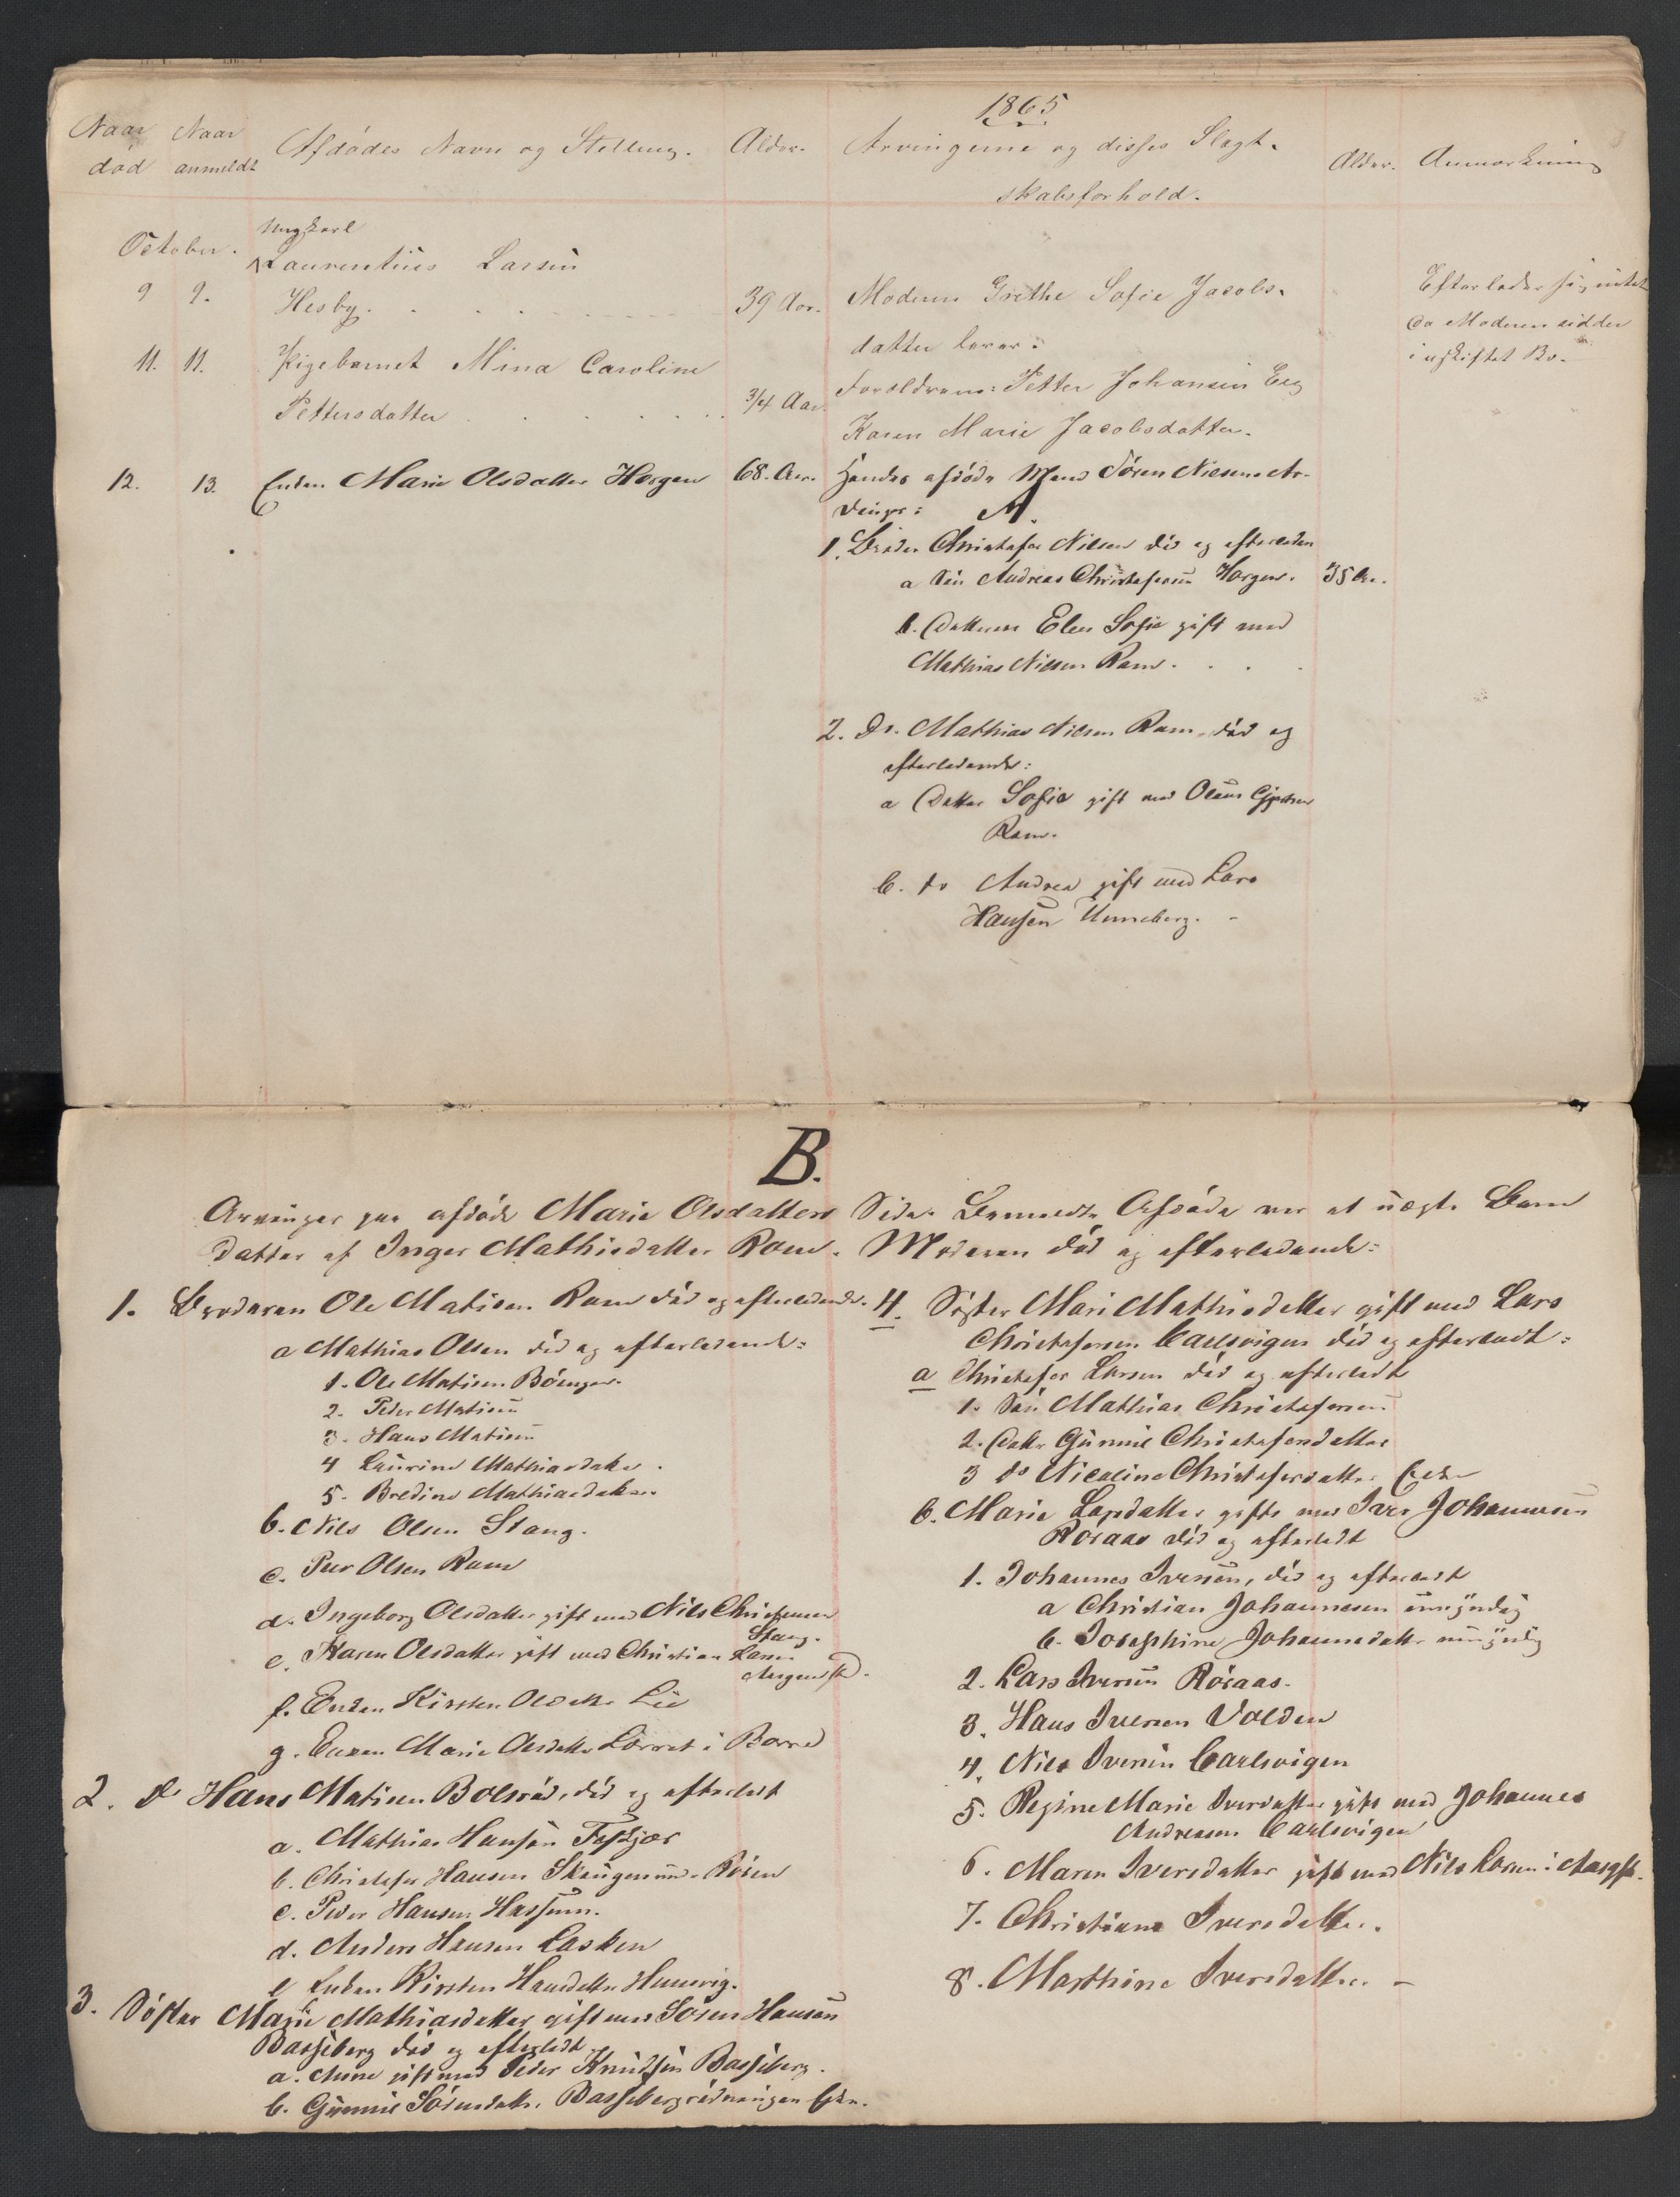 1865
Naar død
Naar anmeldt
Afdødes Navn og Stelling.
Alder.
Arvingerne og disses Slægt-
skabsforhold.
Alder.
Anmærkning
October.
Ungkarl
Laurentius Larsen
9 9. Hesby. 39 Aar.
Moderen Grethe Sofie Jacobs-
datter lever.
Efterlader sig intet
da Moderen sidder
i uskiftet Bo.
11. 11. Pigebarnet Mina Caroline
Pettersdatter 3/4 Aar.
Forældrene: Petter Johansen Eeg
Karen Marie Jacobsdatter.
12. 13. Enken Marie Olsdatter Horgen 68. Aar.
Hendes afdøde Mand Sören Nielsens Ar-
vinger: A.
1. Broder Christofer Nilsen död og efterladen
a Sön Andreas Christofersen Horgen. 35 Aar.
b. Datteren Elen Sofie gift med
Mathias Nilsen Ram.
2. Do. Mathias Nilsen Ram, död og
efterladende:
a Datter Sofie gift med Olaus
Ram.
b. do Andrea gift med Lars
Hansen Unneberg.
B.
Arvinger paa afdöde Marie Olsdatters Side. Bemeldte Afdöde var et uægte Barn
Datter af Inger Mathisdatter Ram. Moderen död og efterladende:
1. Broderen Ole Matisen Ram död og efterladende.
a Mathias Olsen död og efterladende:
1. Ole Matisen
2. Peder Matisen
3. Hans Matisen
4 Laurine Mathiasdatter.
5. Bredine Mathiasdatter
b. Nils Olsen Stang.
c. Peer Olsen Ram
d. Ingeborg Olsdatter gift med Nils Christensen
Stang.
e. Karen Olsdatter gift med Christian Larsen
f. Enken Kirsten Olsdatter Lie
g. Enken Marie Olsdatter i Borre
2. do Hans Matisen död og efterladt
a. Mathias Hansen
b. Christofer Hansen
c. Peder Hansen Hassum.
d. Anders Hansen Lasken
e Enken Kirsten Hansdatter
3. Söster Marie Mathiasdatter gift med Sören Hansen
Basseberg död og efterladt
a. Anne gift med Peder Knudsen Basseberg.
b. Gunnil Sörensdatter.
4. Söster Mari Mathisdatter gift med Lars
Christofersen Carlsvigen död og efterladt:
a Christofer Larsen död og efterladt
1. Sön Mathias Christofersen
2. Datter Gunnil Christofersdatter
3 do Nicoline Christofersdatter
b. Marie Larsdatter gift med Iver Johannesen
Röraas död og efterladt
1. Johannes Iversen, död og efterladt
a Christian Johannesen umyndig
b. Josephine Johannesdatter umyndig
2. Lars Iversen Röraas.
3. Hans Iversen Volden
4. Nils Iversen Carlsvigen
5. Regine Marie Iversdatter gift med Johannes
Andreasen Carlsvigen
6. Maren Iversdatter gift med Nils Larsen i
7. Christiane Iversdatter.
8. Marthine Iversdatter.